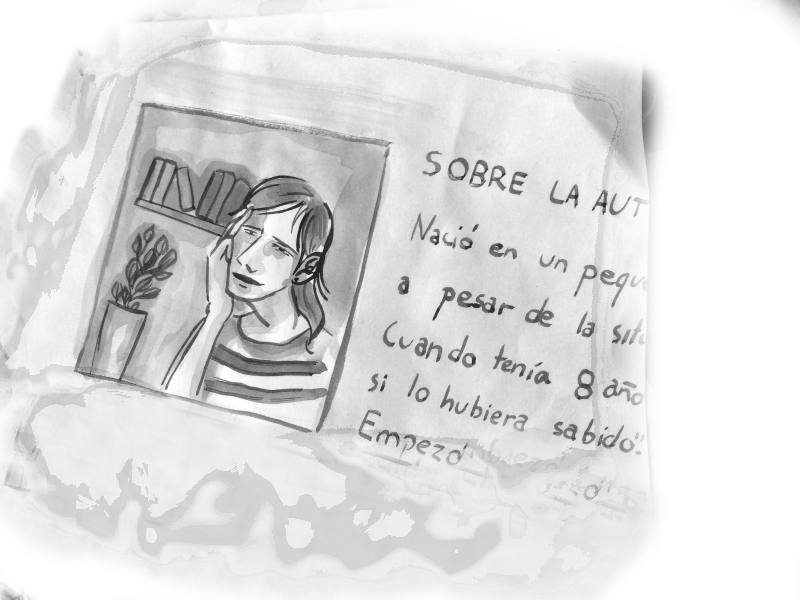 SOBRE LA AUT
Nació en un peque
a pesar de la situ
Cuando tenía 8 año
si lo hubiera sabido".
Empezó